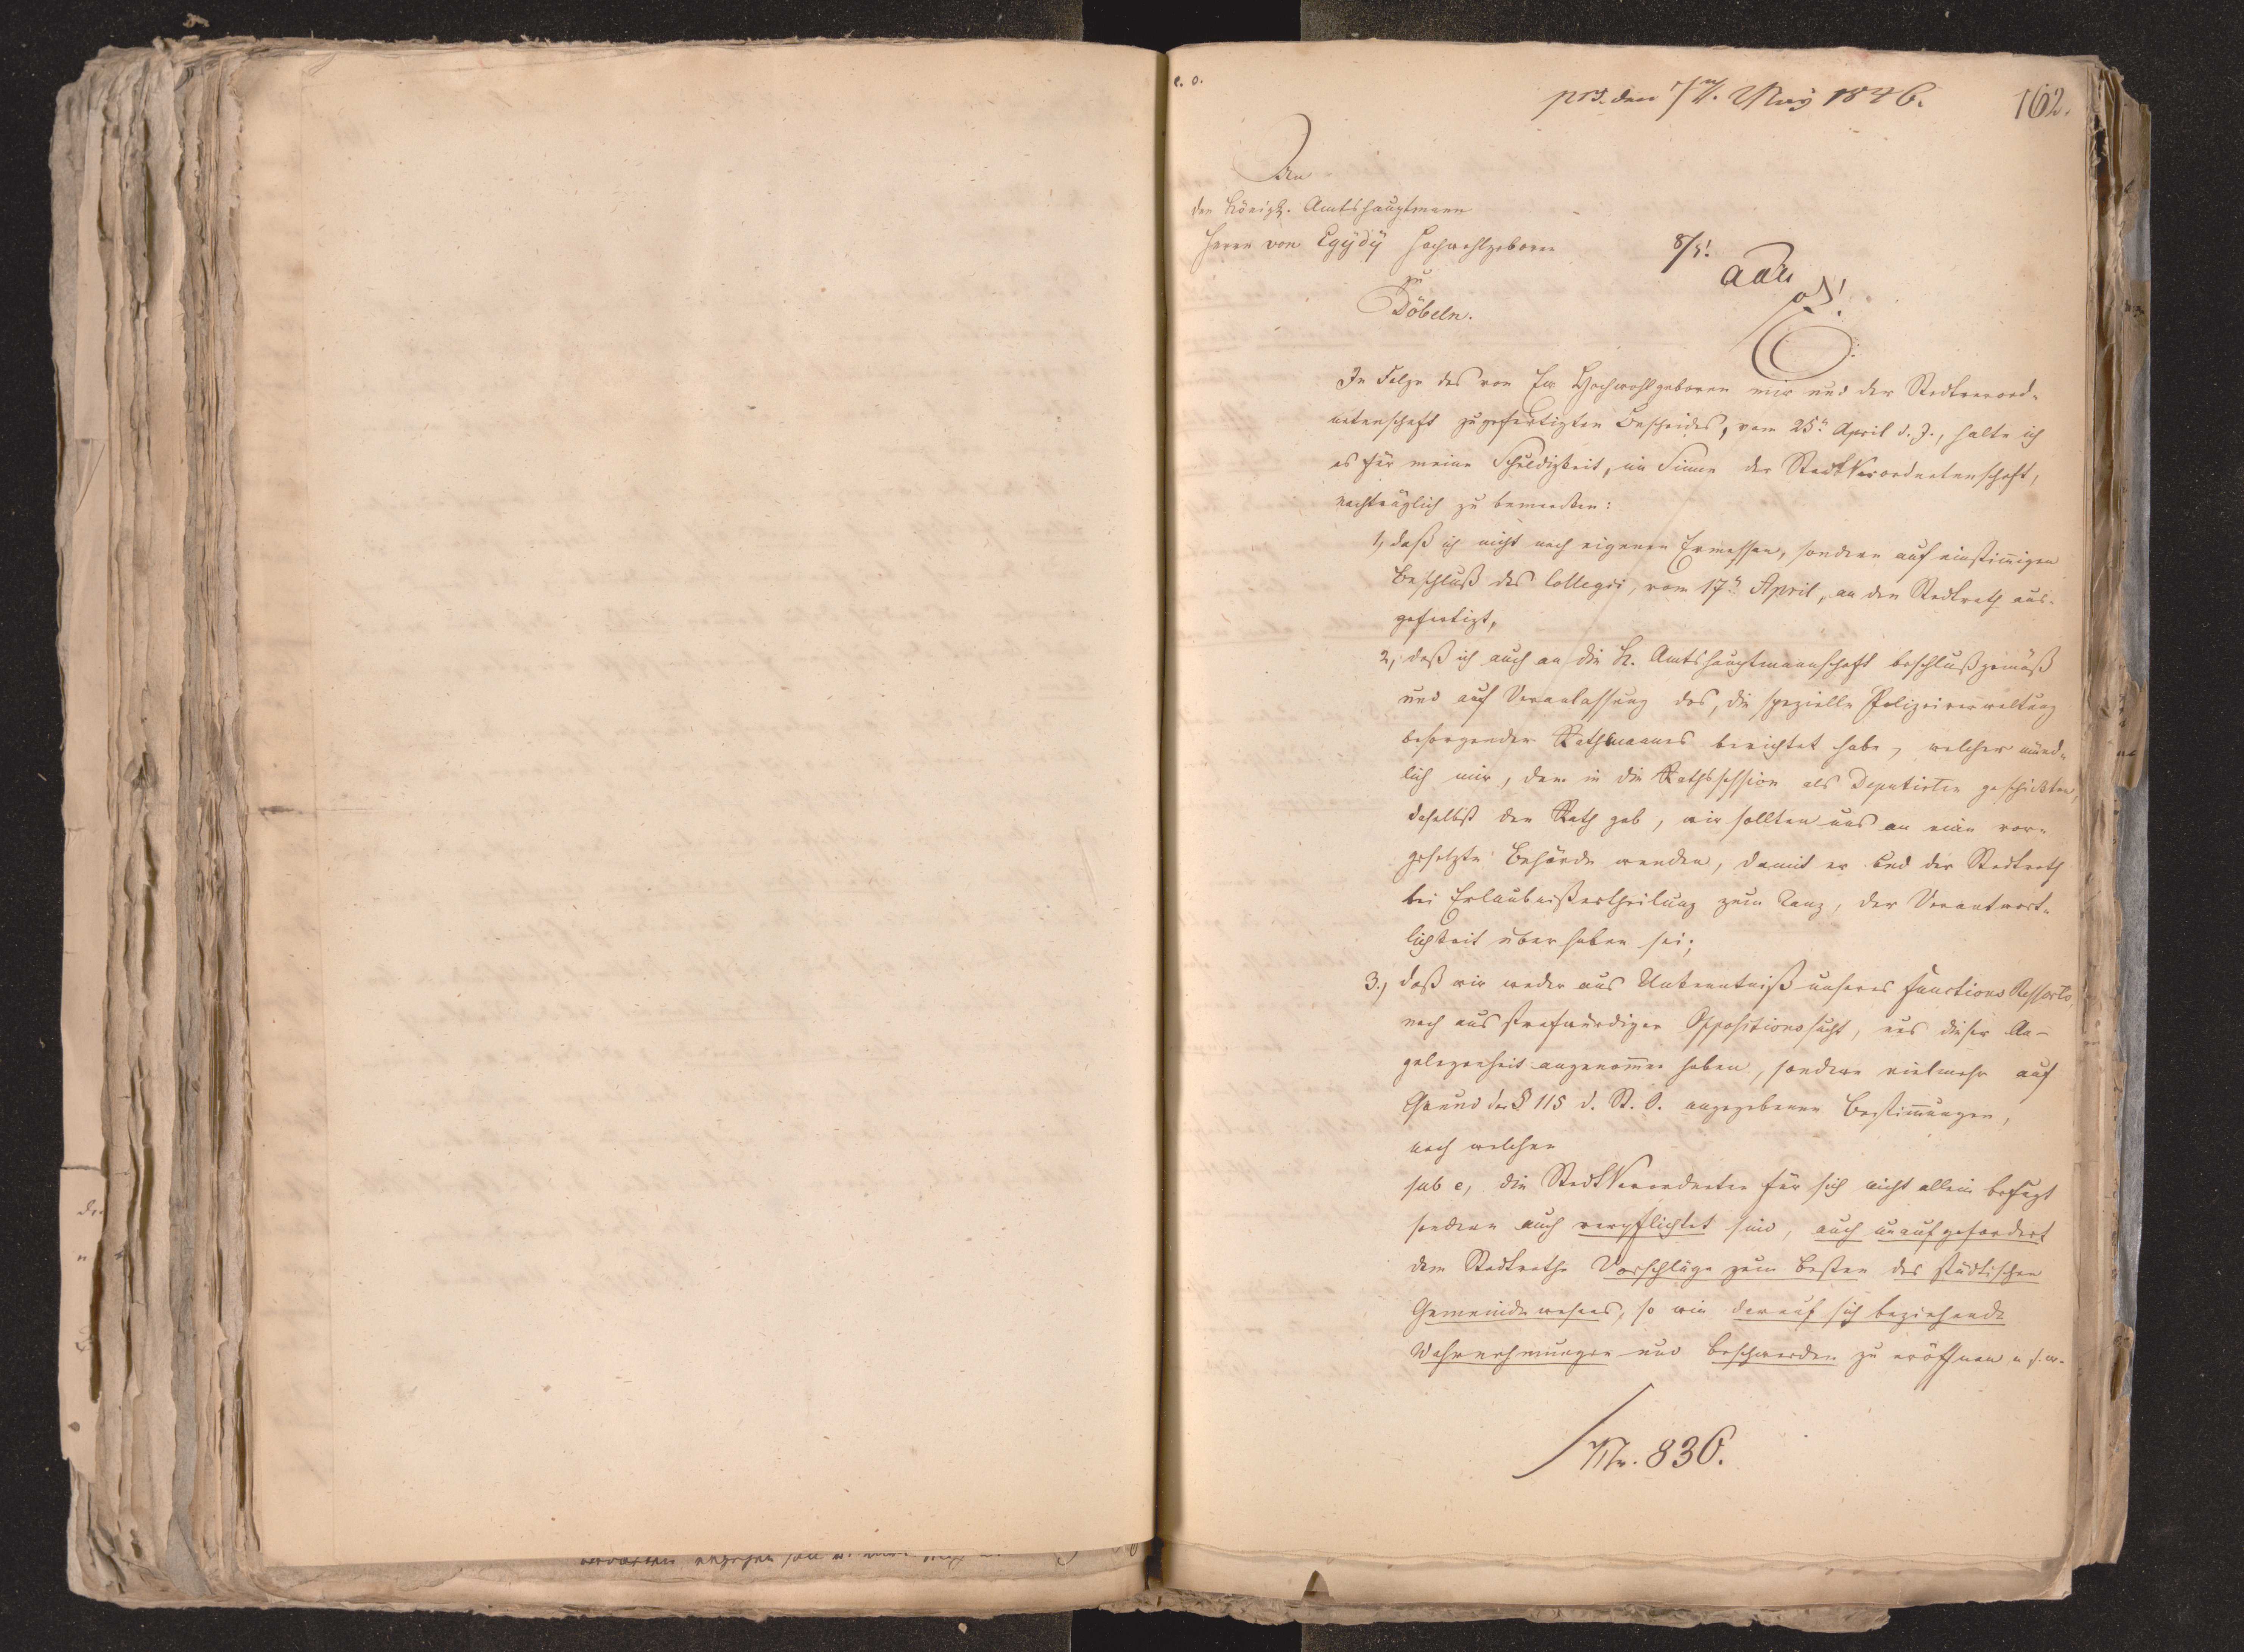 e. o.
prs. den 7/5. May 1846.
162.
An
den Königl. Amtshauptmann
Herrn von Egÿdÿ Hochwohlgeboren
zu
Döbeln.
8/5!
ada
In Folge des von Ew Hochwohlgeboren mir und der Stadtverord-
netenschaft zugefertigten Bescheides, vom 25n April d. J., halte ich
es für meine Schuldigkeit, im Sinne der StadtVerordnetenschaft,
nachträglich zu bemerken:
1, daß ich nicht nach eigenen Ermessen, sondern auf einstim̄igen
Beschluß des Collegii, vom 17n April, an den Stadtrath aus-
gefertigt,
2, daß ich auch an die K. Amtshauptmannschaft beschlußgemäß
und auf Veranlassung des, die spezielle Polizeiverwaltung
besorgenden Rathmannes berichtet habe, welcher münd-
lich mir, dem in die Rathssession als Deputirten geschickten,
daselbst den Rath gab, wir sollten uns an eine vor-
gesetzte Behörde wenden, damit er und der Stadtrath
bei Erlaubnißertheilung zum Tanz, der Verantwort-
lichkeit überhoben sei;
3., daß wir weder aus Unkenntniß unseres Functions Ressorts,
noch aus strafwürdiger Oppositionssucht, uns dieser An-
gelegenheit angenom̄en haben, sondern vielmehr auf
Grund der § 115 d. St. O. angegebenen Bestim̄ungen,
nach welchen
sub e, die StadtVerordneten für sich nicht allein befugt
sondern auch verpflichtet sind, auch unaufgefordert
dem Stadtrathe Vorschläge zum Besten des städtischen
Gemeindewesens, so wie darauf sich beziehende
Wahrnehmungen und Beschwerden zu eröffnen u. s. w.
Nr. 836.